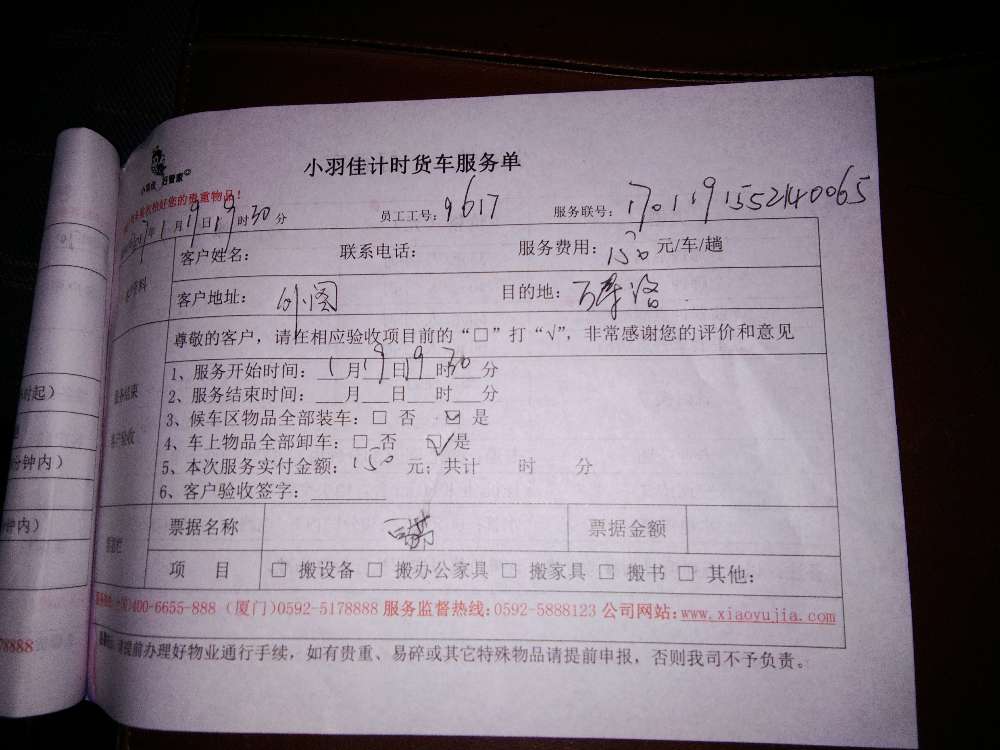 小羽佳计时货车服务单
您的贵重物品!
2017年1月19日19时30分 员工工号:9617 服务联号:170119155214 0065
客户姓名: 联系电话: 服务费用:150元/车/趟
客户地址: 目的地:
尊敬的客户，请在相应验收项目前的“□”打“√”，非常感谢您的评价和意见
1、服务开始时间:1月19日19时30分
2、服务结束时间:___月___日___时___分
3、候车区物品全部装车:□ 否 ☑ 是
4、车上物品全部卸车:□ 否 ☑ 是
5、本次服务实付金额:150 元; 共计 时 分
6、客户验收签字:________
票据名称 票据金额
项 目 □ 搬设备 □ 搬办公家具 □ 搬家具 □ 搬书 □ 其他:
400-6655-888 (厦门)0592-5178888 服务监督热线:0592-5888123 公司网站:www.xiaoyujia.com
请提前办理好物业通行手续，如有贵重、易碎或其它特殊物品请提前申报，否则我司不予负责。
时起）
分钟内）
钟内）
78888